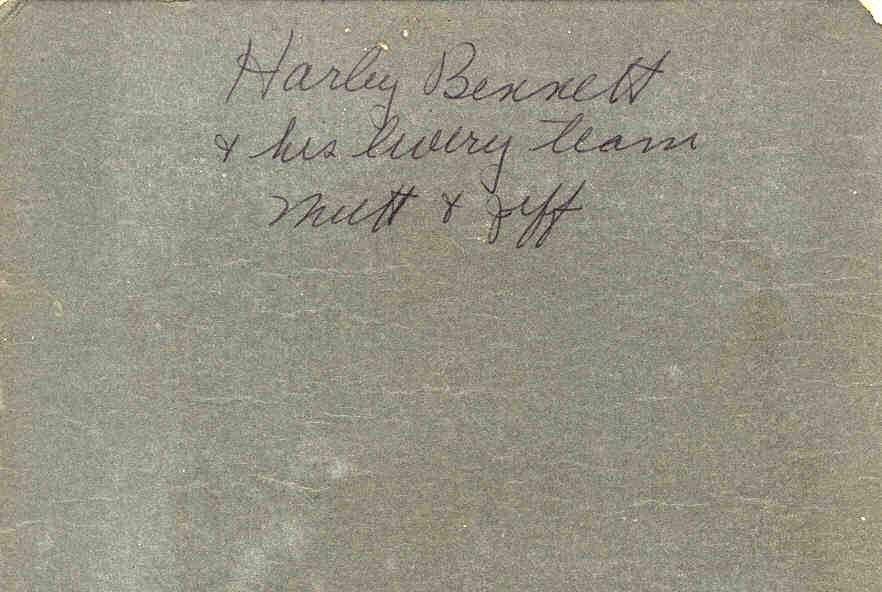 Harley Bennett
& his livery team
Mutt & Jeff